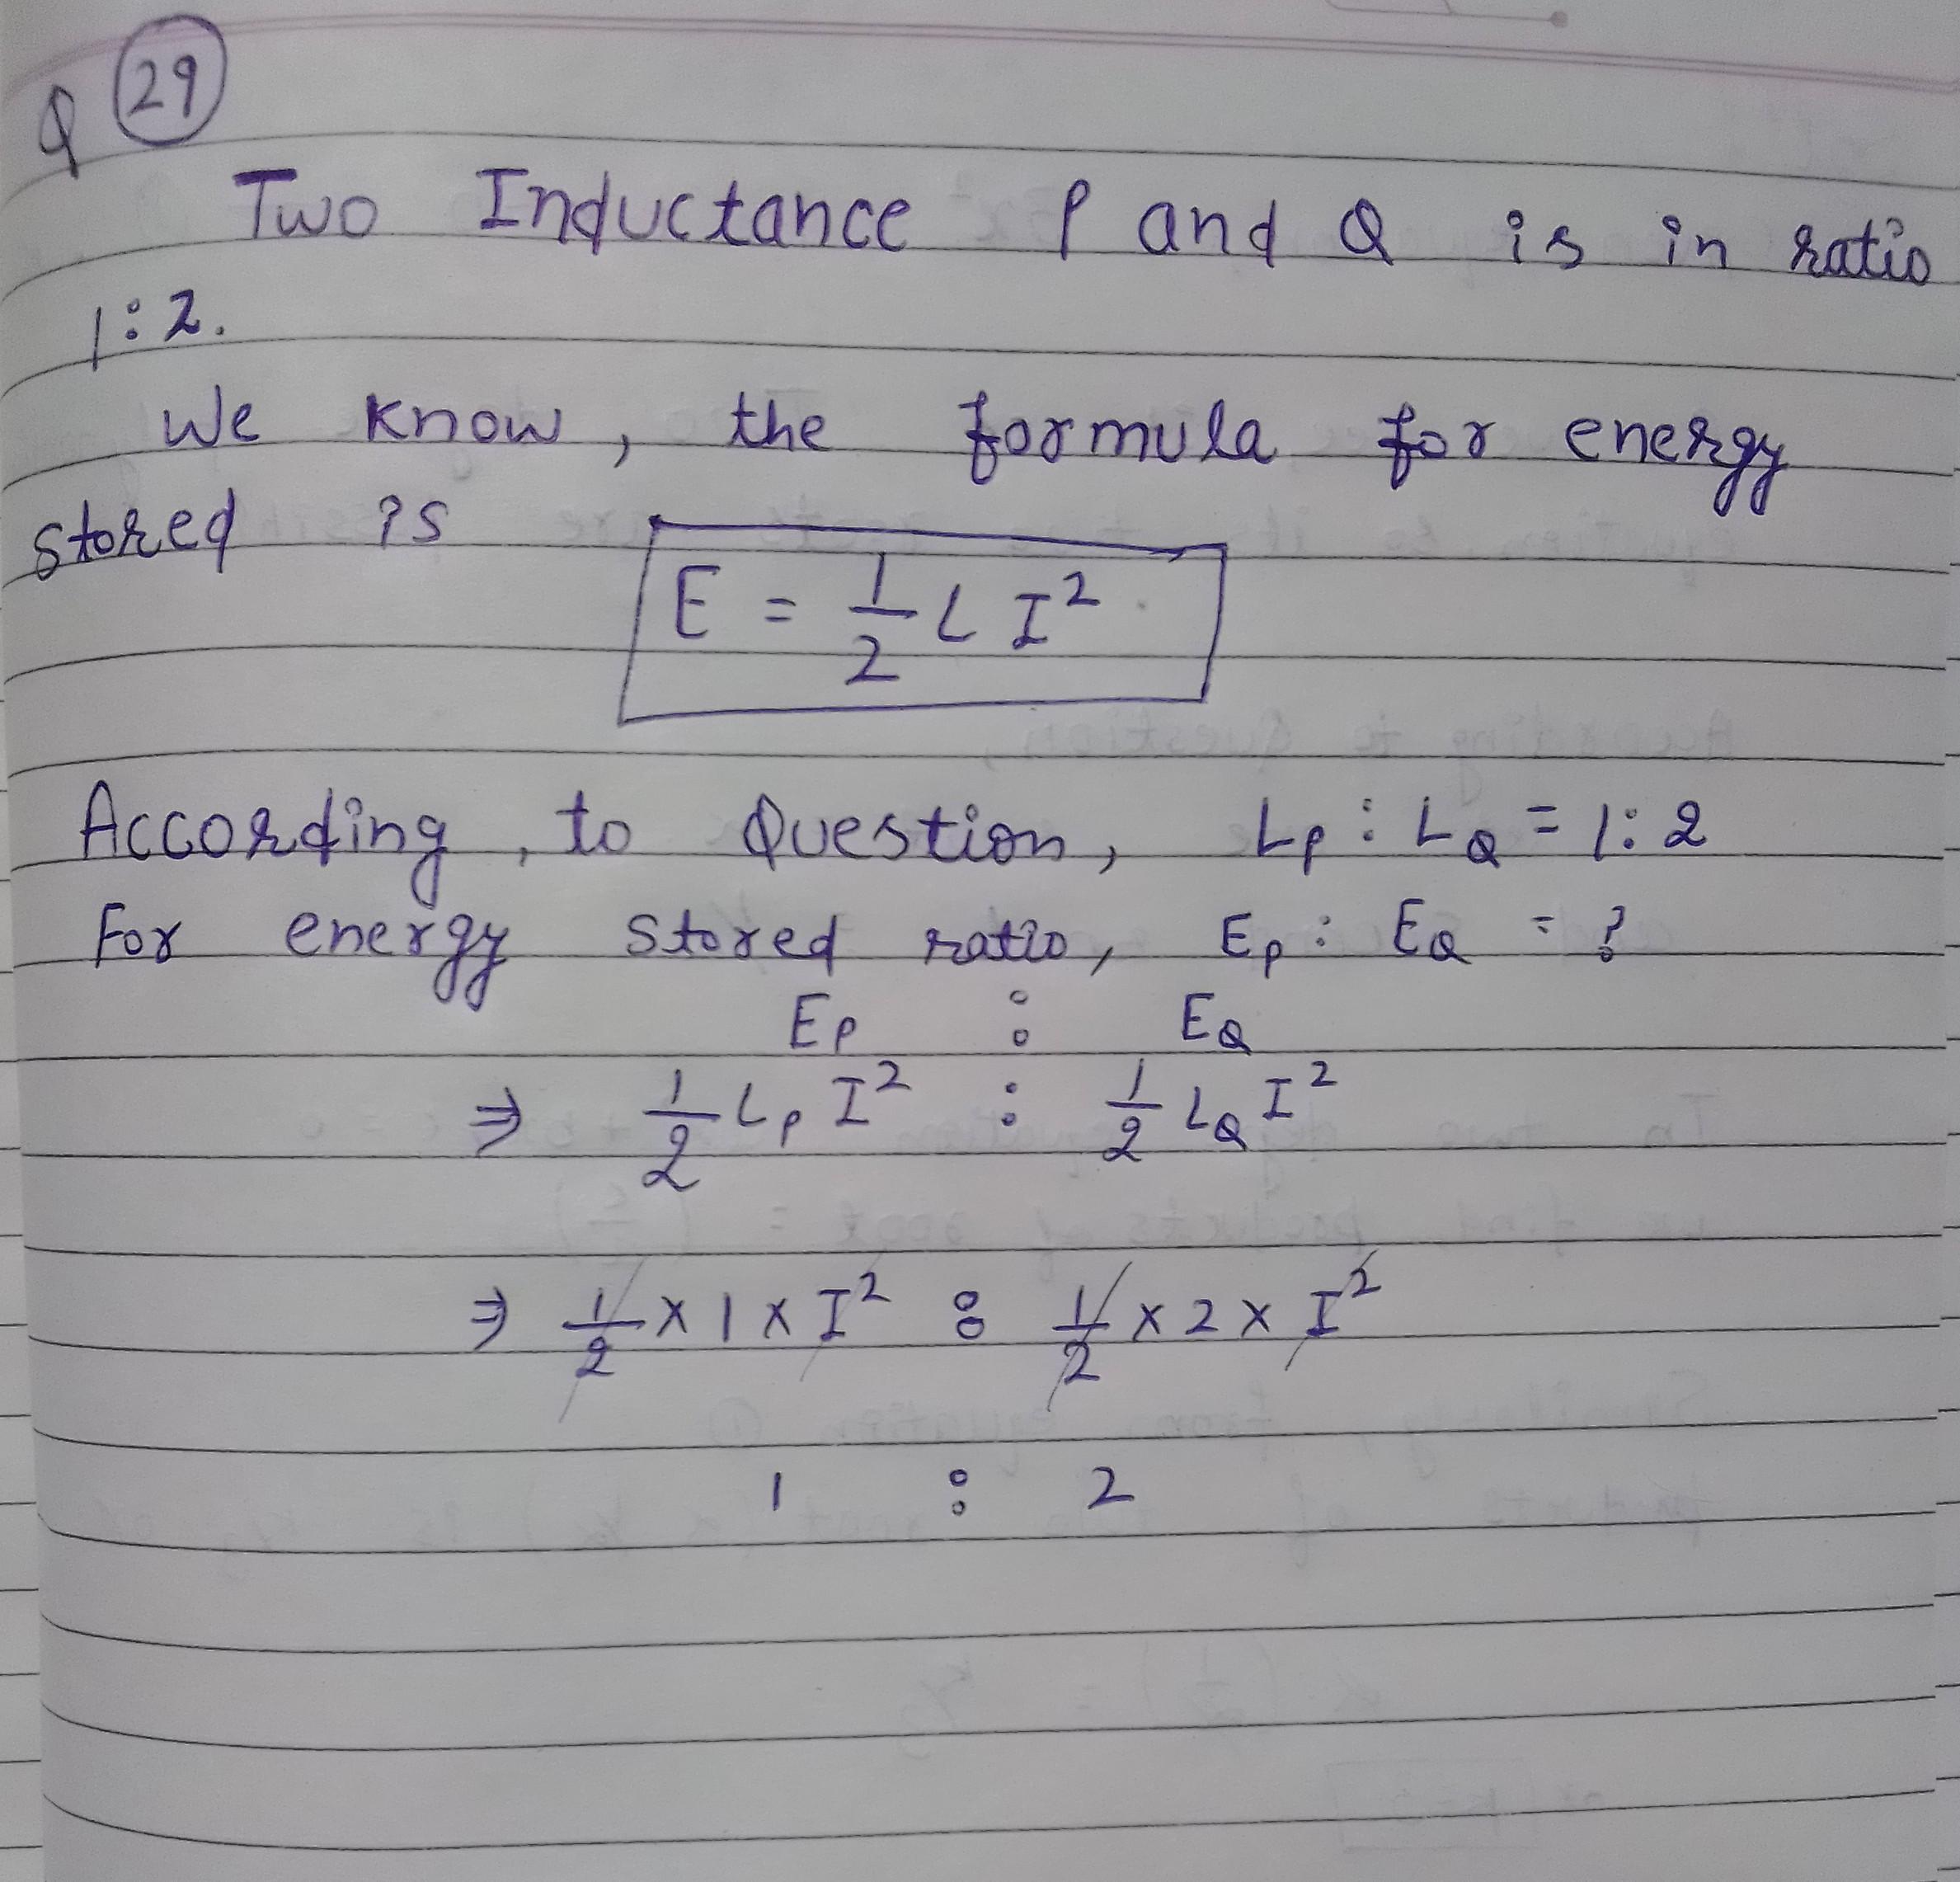 Q 29
Two Inductance P and Q is in ratio
1:2.
We know, the formula for energy
stored is
E = 1/2 L I²
According, to Question, Lp : LQ = 1:2
For energy stored ratio, Ep : EQ = ?
Ep : EQ
⇒ 1/2 Lp I² : 1/2 LQ I²
⇒ 1/2 × 1 × I² : 1/2 × 2 × I²
1 : 2